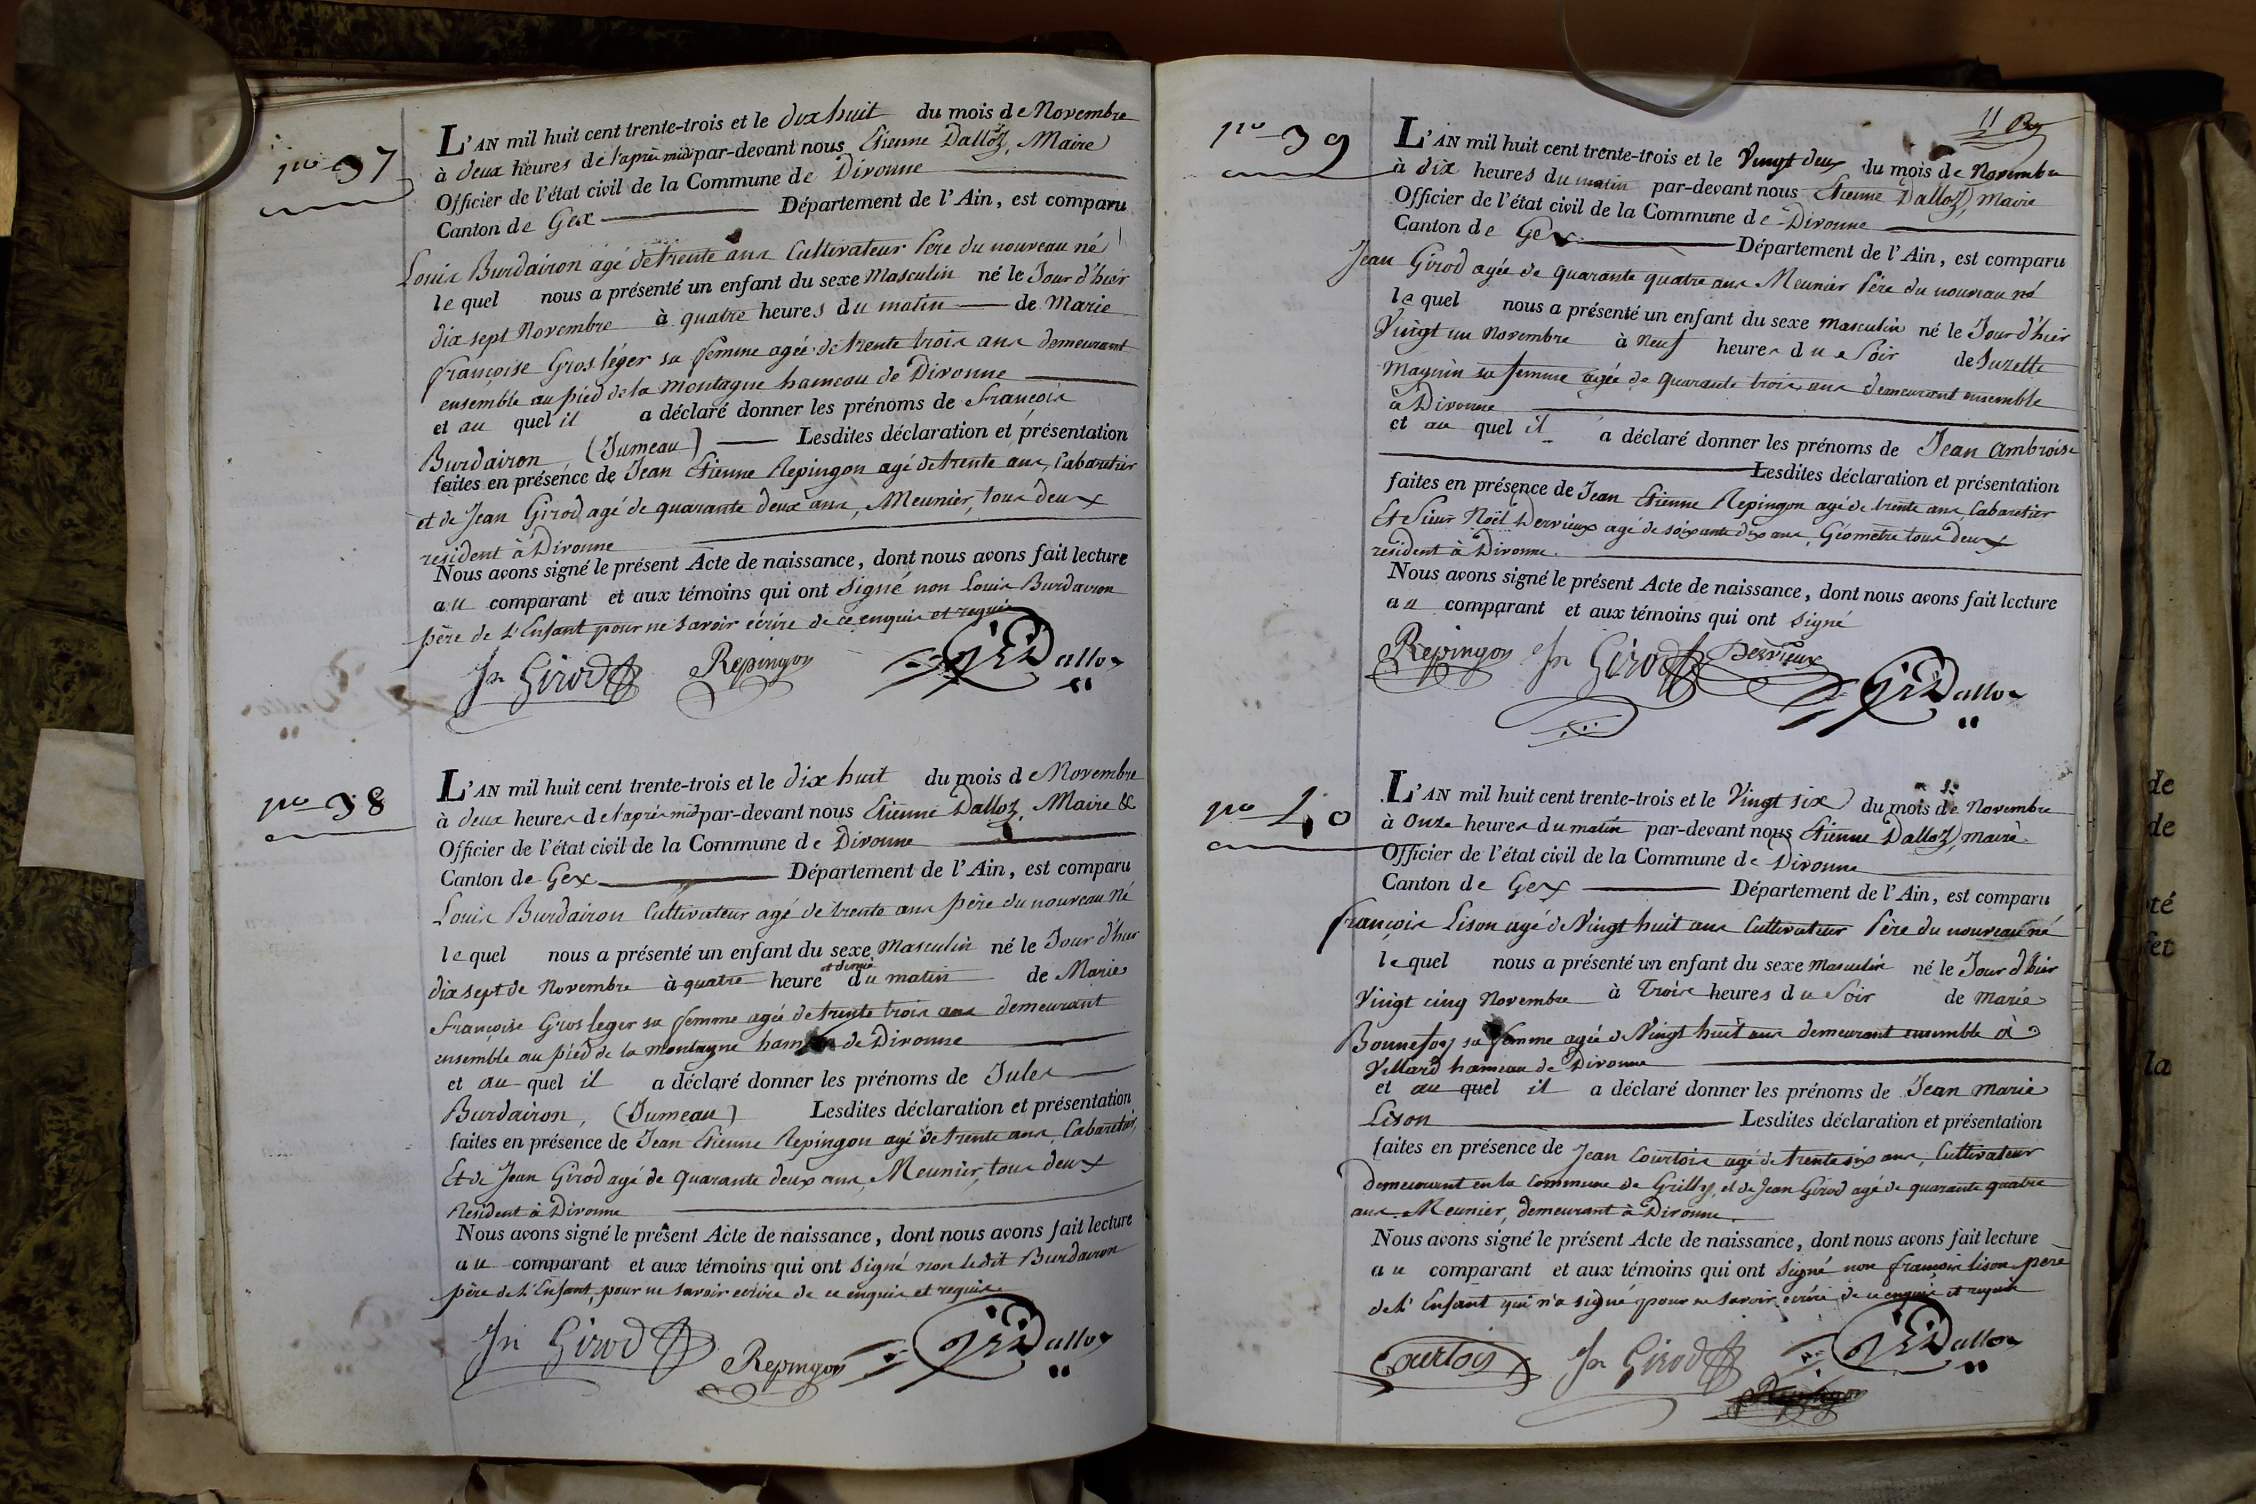 no 37
L'AN mil huit cent trente-trois et le dix huit du mois de Novembre
à deux heures de l'après midi par-devant nous Etienne Dalloz, Maire
Officier de l'état civil de la Commune de Divonne
Canton de Gex Département de l'Ain, est comparu
Louis Burdairon agé de trente ans Cultivateur Père du nouveau né
le quel nous a présenté un enfant du sexe Masculin né le Jour d'hier
dix sept Novembre à quatre heures du matin de Marie
françoise Gros léger sa femme agée de trente trois ans demeurant
ensemble au pied de la montagne hameau de Divonne
et au quel il a déclaré donner les prénoms de François
Burdairon (Jumeau) Lesdites déclaration et présentation
faites en présence de Jean Etienne Repingon agé de trente ans, Cabaretier
et de Jean Girod agé de quarante deux ans, Meunier, tous deux
resident à Divonne
Nous avons signé le présent Acte de naissance, dont nous avons fait lecture
au comparant et aux témoins qui ont Signé non Louis Burdairon
père de l'Enfant pour ne savoir écrire de ce enquis et requis
Jn Girod Repingon Dalloz
no 38
L'AN mil huit cent trente-trois et le dix huit du mois de Novembre
à deux heures de l'après midi par-devant nous Etienne Dalloz, Maire &
Officier de l'état civil de la Commune de Divonne
Canton de Gex Département de l'Ain, est comparu
Louis Burdairon Cultivateur agé de trente ans père du nouveau Né
le quel nous a présenté un enfant du sexe Masculin né le Jour d'hier
et demie
dix sept de Novembre à quatre heure du matin de Marie
françoise Gros leger sa femme agée de trente trois ans demeurant
ensemble au pied de la montagne hameau de Divonne
et au quel il a déclaré donner les prénoms de Jules
Burdairon, (Jumeau) Lesdites déclaration et présentation
faites en présence de Jean Etienne Repingon agé de trente ans, Cabaretier,
Et de Jean Girod agé de quarante deux ans, Meunier, tous deux
Resident à Divonne
Nous avons signé le présent Acte de naissance, dont nous avons fait lecture
au comparant et aux témoins qui ont signé non ledit Burdairon
père de l'Enfant, pour ne savoir ecrire de ce enquis et requis
Jn Girod Repingon Dalloz
11
no 39
L'AN mil huit cent trente-trois et le Vingt deux du mois de Novembre
à dix heures du matin par-devant nous Etienne Dalloz, Maire
Officier de l'état civil de la Commune de Divonne
Canton de Gex Département de l'Ain, est comparu
Jean Girod agée de quarante quatre ans Meunier Père du nouveau né
le quel nous a présenté un enfant du sexe masculin né le Jour d'hier
Vingt un Novembre à Neuf heures du Soir de Suzette
Magnin sa femme agée de quarante trois ans demeurant ensemble
à Divonne
et au quel il a déclaré donner les prénoms de Jean Ambroise
Lesdites déclaration et présentation
faites en présence de Jean Etienne Repingon agé de trente ans Cabaretier
Et Sieur Noël Dervieux agé de soixante dix ans, Géomètre tous deux
resident à Divonne.
Nous avons signé le présent Acte de naissance, dont nous avons fait lecture
au comparant et aux témoins qui ont signé
Repingon Jn Girod Dervieux Dalloz
no 40
L'AN mil huit cent trente-trois et le Vingt six du mois de Novembre
à Onze heures du matin par-devant nous Etienne Dalloz, maire
Officier de l'état civil de la Commune de Divonne
Canton de Gex Département de l'Ain, est comparu
françois Lison agé de Vingt huit ans Cultivateur Père du nouveau né
le quel nous a présenté un enfant du sexe Masculin né le Jour d'hier
Vingt cinq Novembre à Trois heures du Soir de Marie
Bonnefoy sa femme agée de Vingt huit ans demeurant ensemble à
Villard hameau de Divonne
et au quel il a déclaré donner les prénoms de Jean Marie
Lison Lesdites déclaration et présentation
faites en présence de Jean Courtois agé de trente six ans, Cultivateur
demeurant en la Commune de Grilly, et de Jean Girod agé de quarante quatre
ans Meunier, demeurant à Divonne.
Nous avons signé le présent Acte de naissance, dont nous avons fait lecture
au comparant et aux témoins qui ont Signé non françois lison père
de l'Enfant qui n'a signé pour ne savoir écrire de ce enquis et requis
Courtois Jn Girod Dalloz
Repingon
de
de
té
fet
la